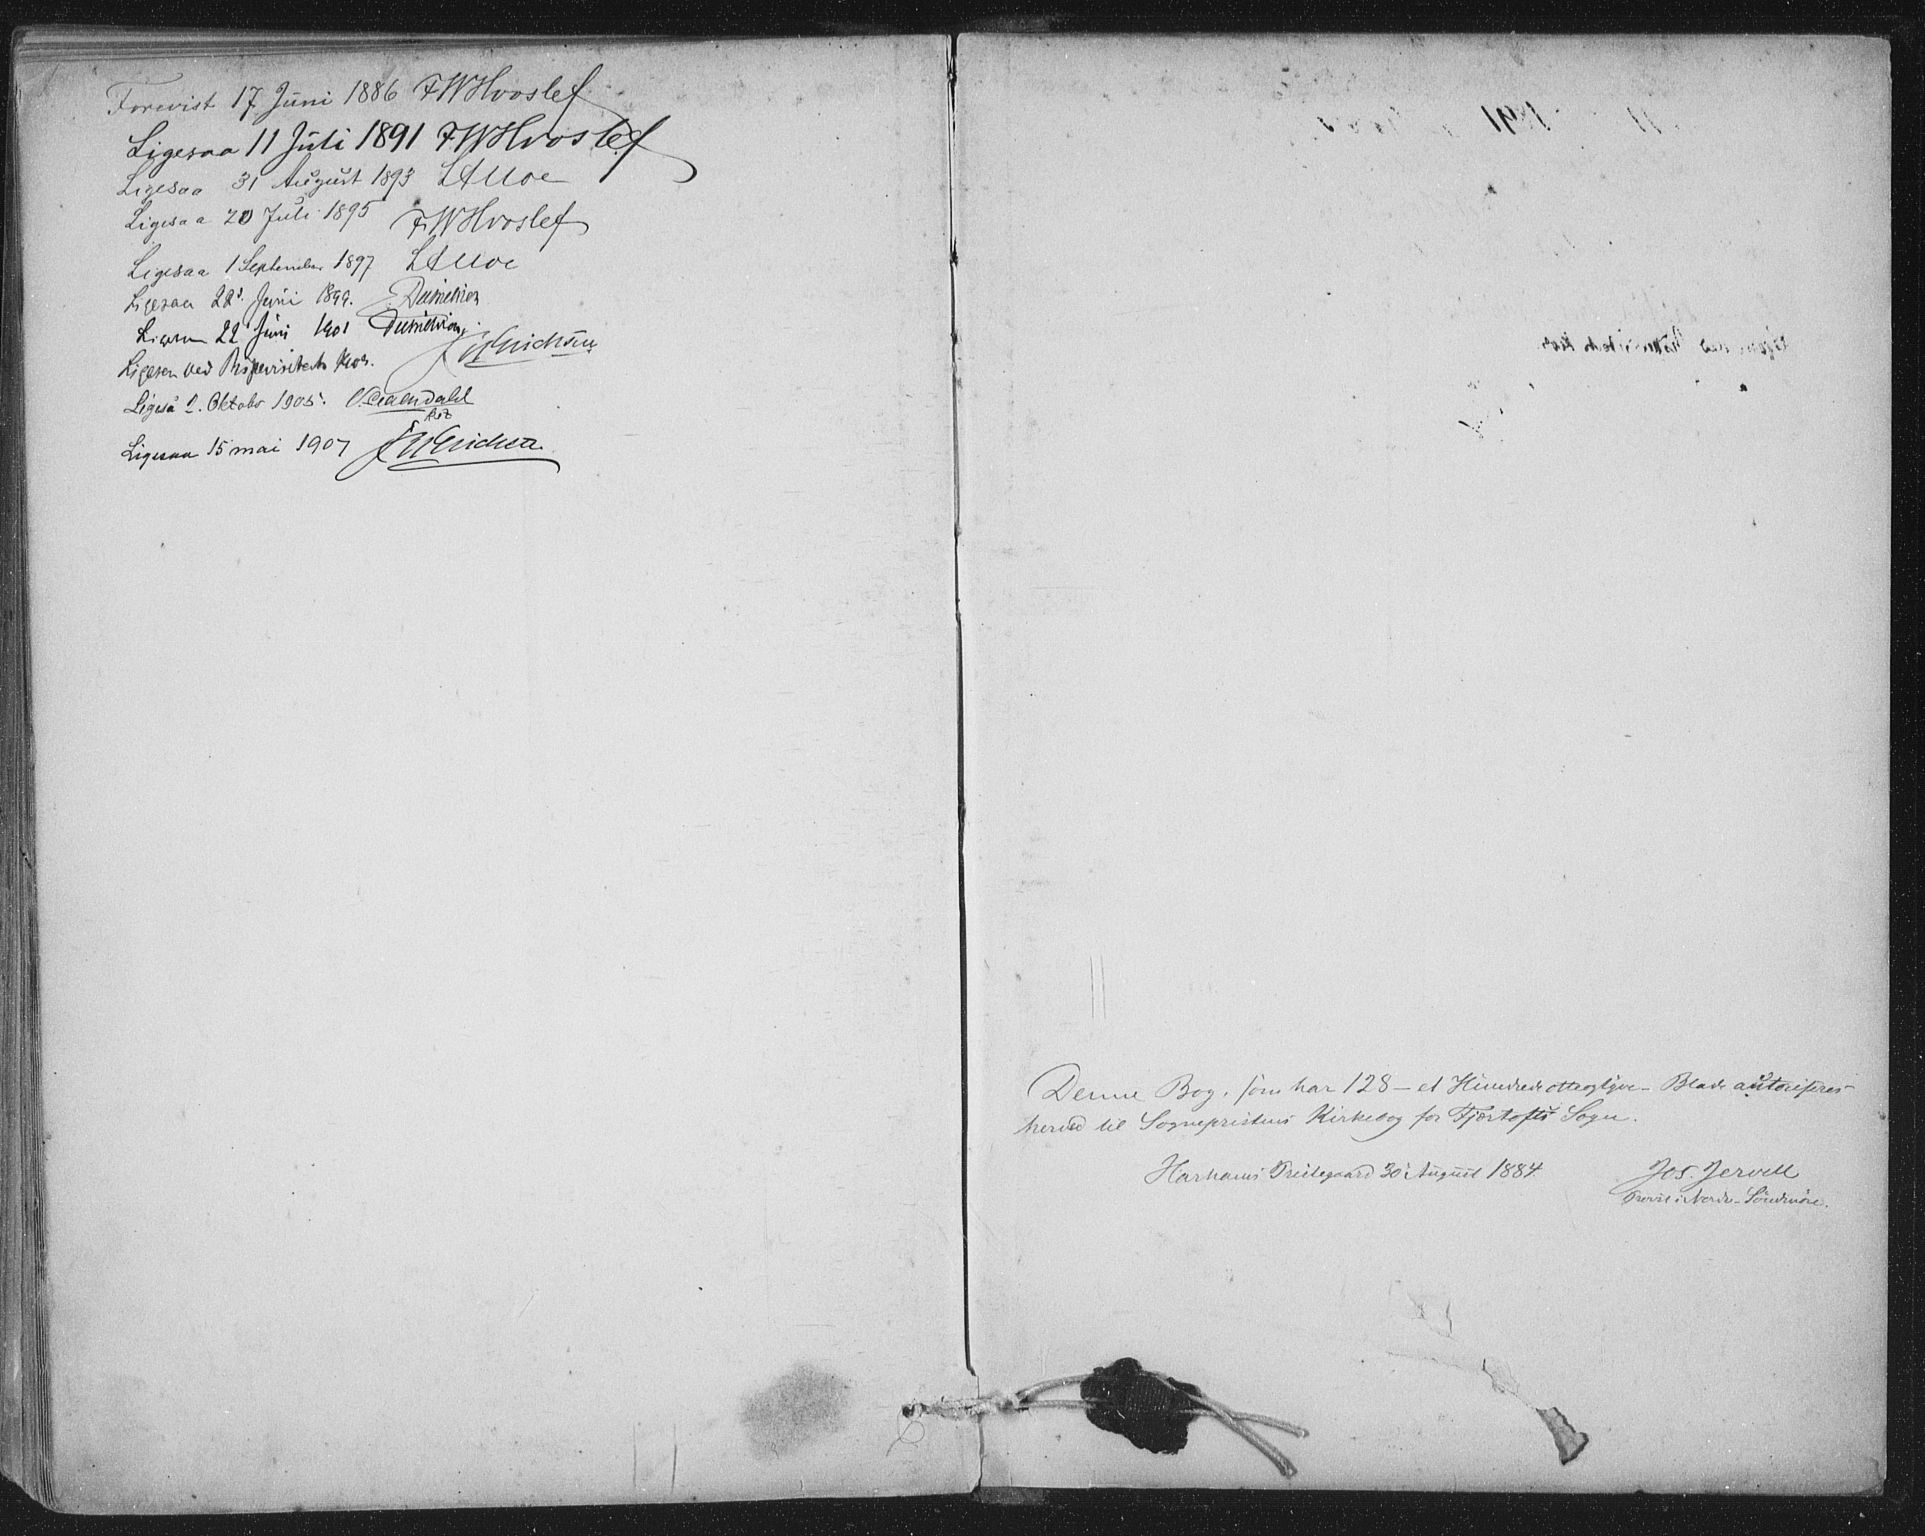 Forevist 17 Juni 1886 FWHvoslef
Ligesaa 11 Juli 1891 FWHvoslef
Ligesaa 31 August 1893 LAMoe
Ligesaa 20 Juli 1895 FWHvoslef
Ligesaa 1 September 1897 LAMoe
Ligesaa 22d. Juni 1899.
Ligesaa 22 Juni 1901
Ligesaa ved Bispevisitats Erichsen
Ligeså 2. Oktober 1905.
Ligesaa 15 mai 1907 Erichsen
Denne Bog, som har 128 – et Hundrede otteogtyve – Blade autoriseres
herved til Sognepræstens Kirkebog for Fjørtofts Sogn.
Harhams Præstegaard 30 August 1884. Jos. Jervell
Provst i Nordre-Søndmøre.